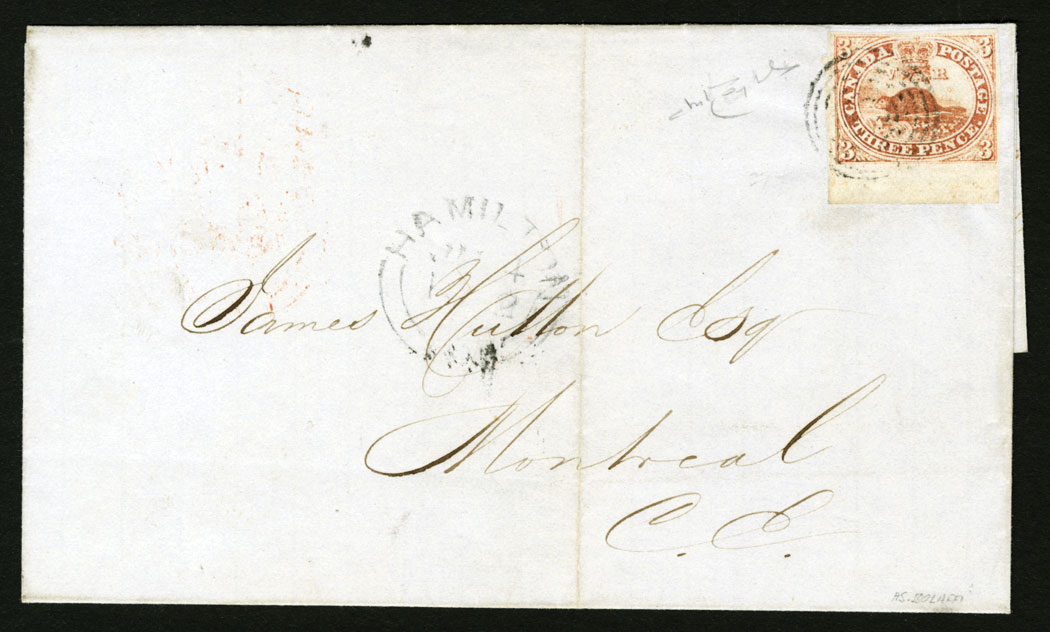 3 CANADA POSTAGE 3
V R
3 THREE PENCE 3
HAMILTON
James Hutton Esq
Montreal
C. E.